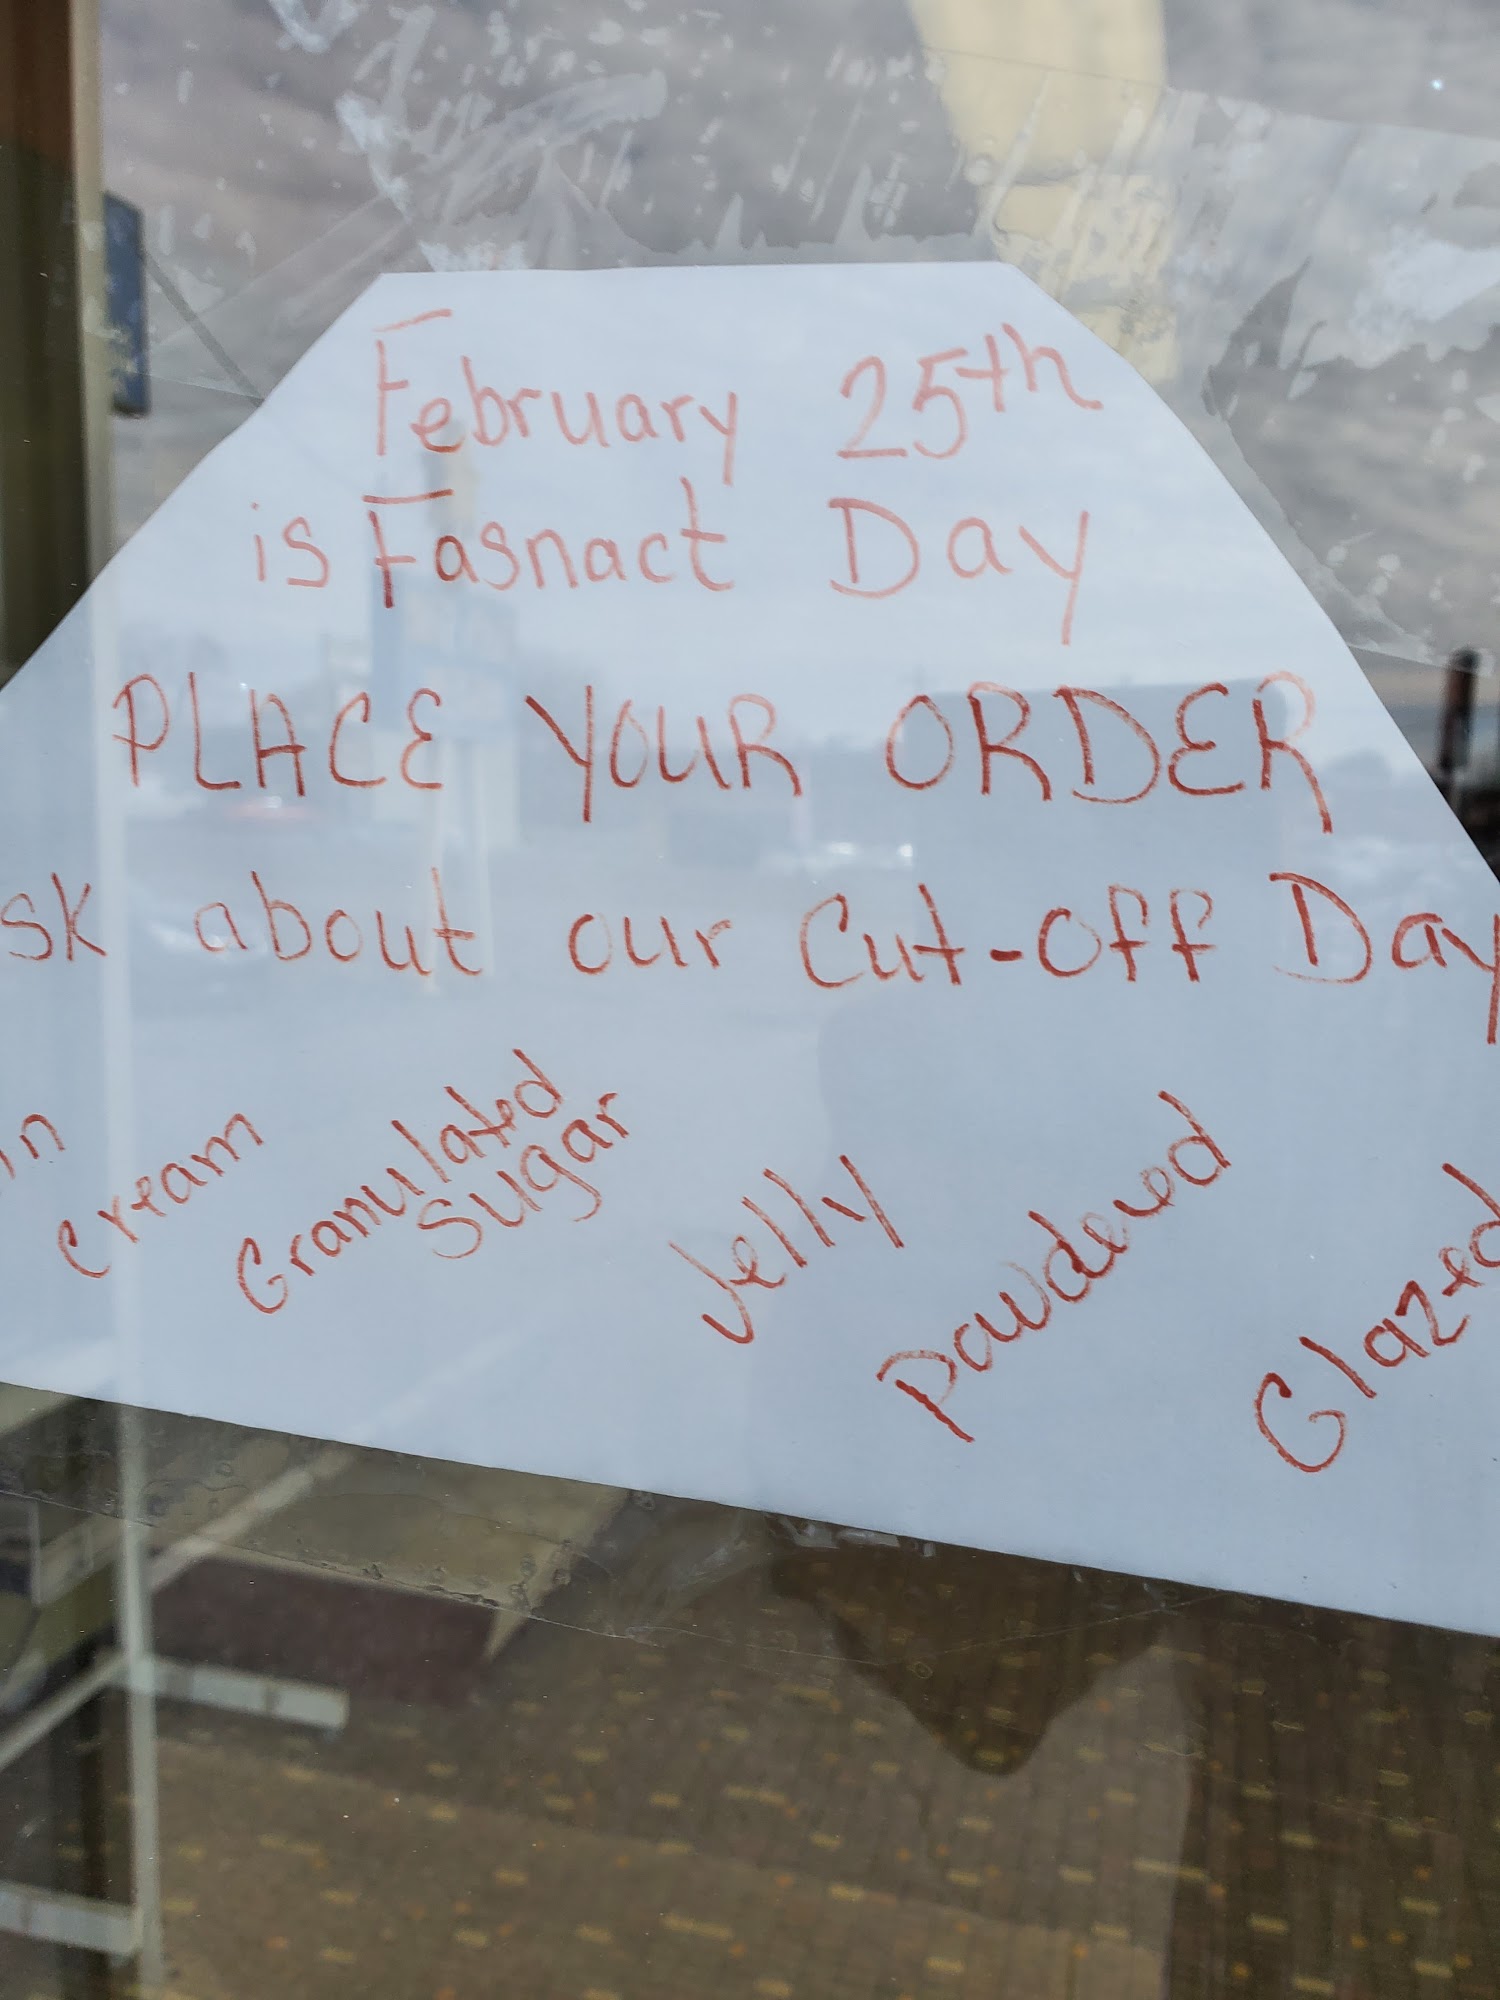 February 25th
is Fasnact Day
PLACE YOUR ORDER
sk about our Cut-Off Day
in
Cream
Granulated
Sugar
Jelly
Powdered
Glazed